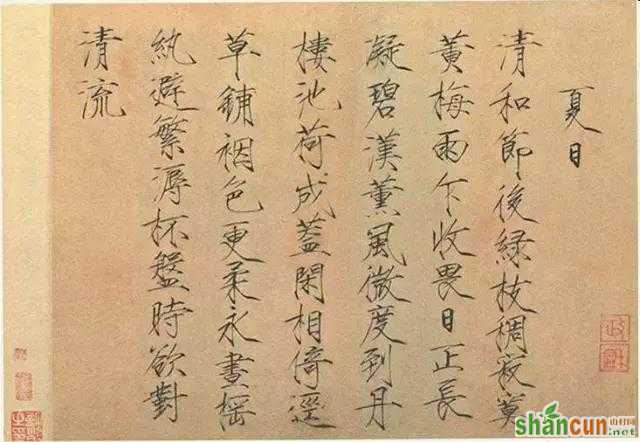 夏日
清和節後綠枝稠寂寞
黃梅雨乍收畏日正長
凝碧漢薰風微度到丹
樓池荷成蓋閑相倚逕
草鋪裀色更柔永晝搖
紈避繁溽杯盤時欲對
清流
政和
shancun
.net